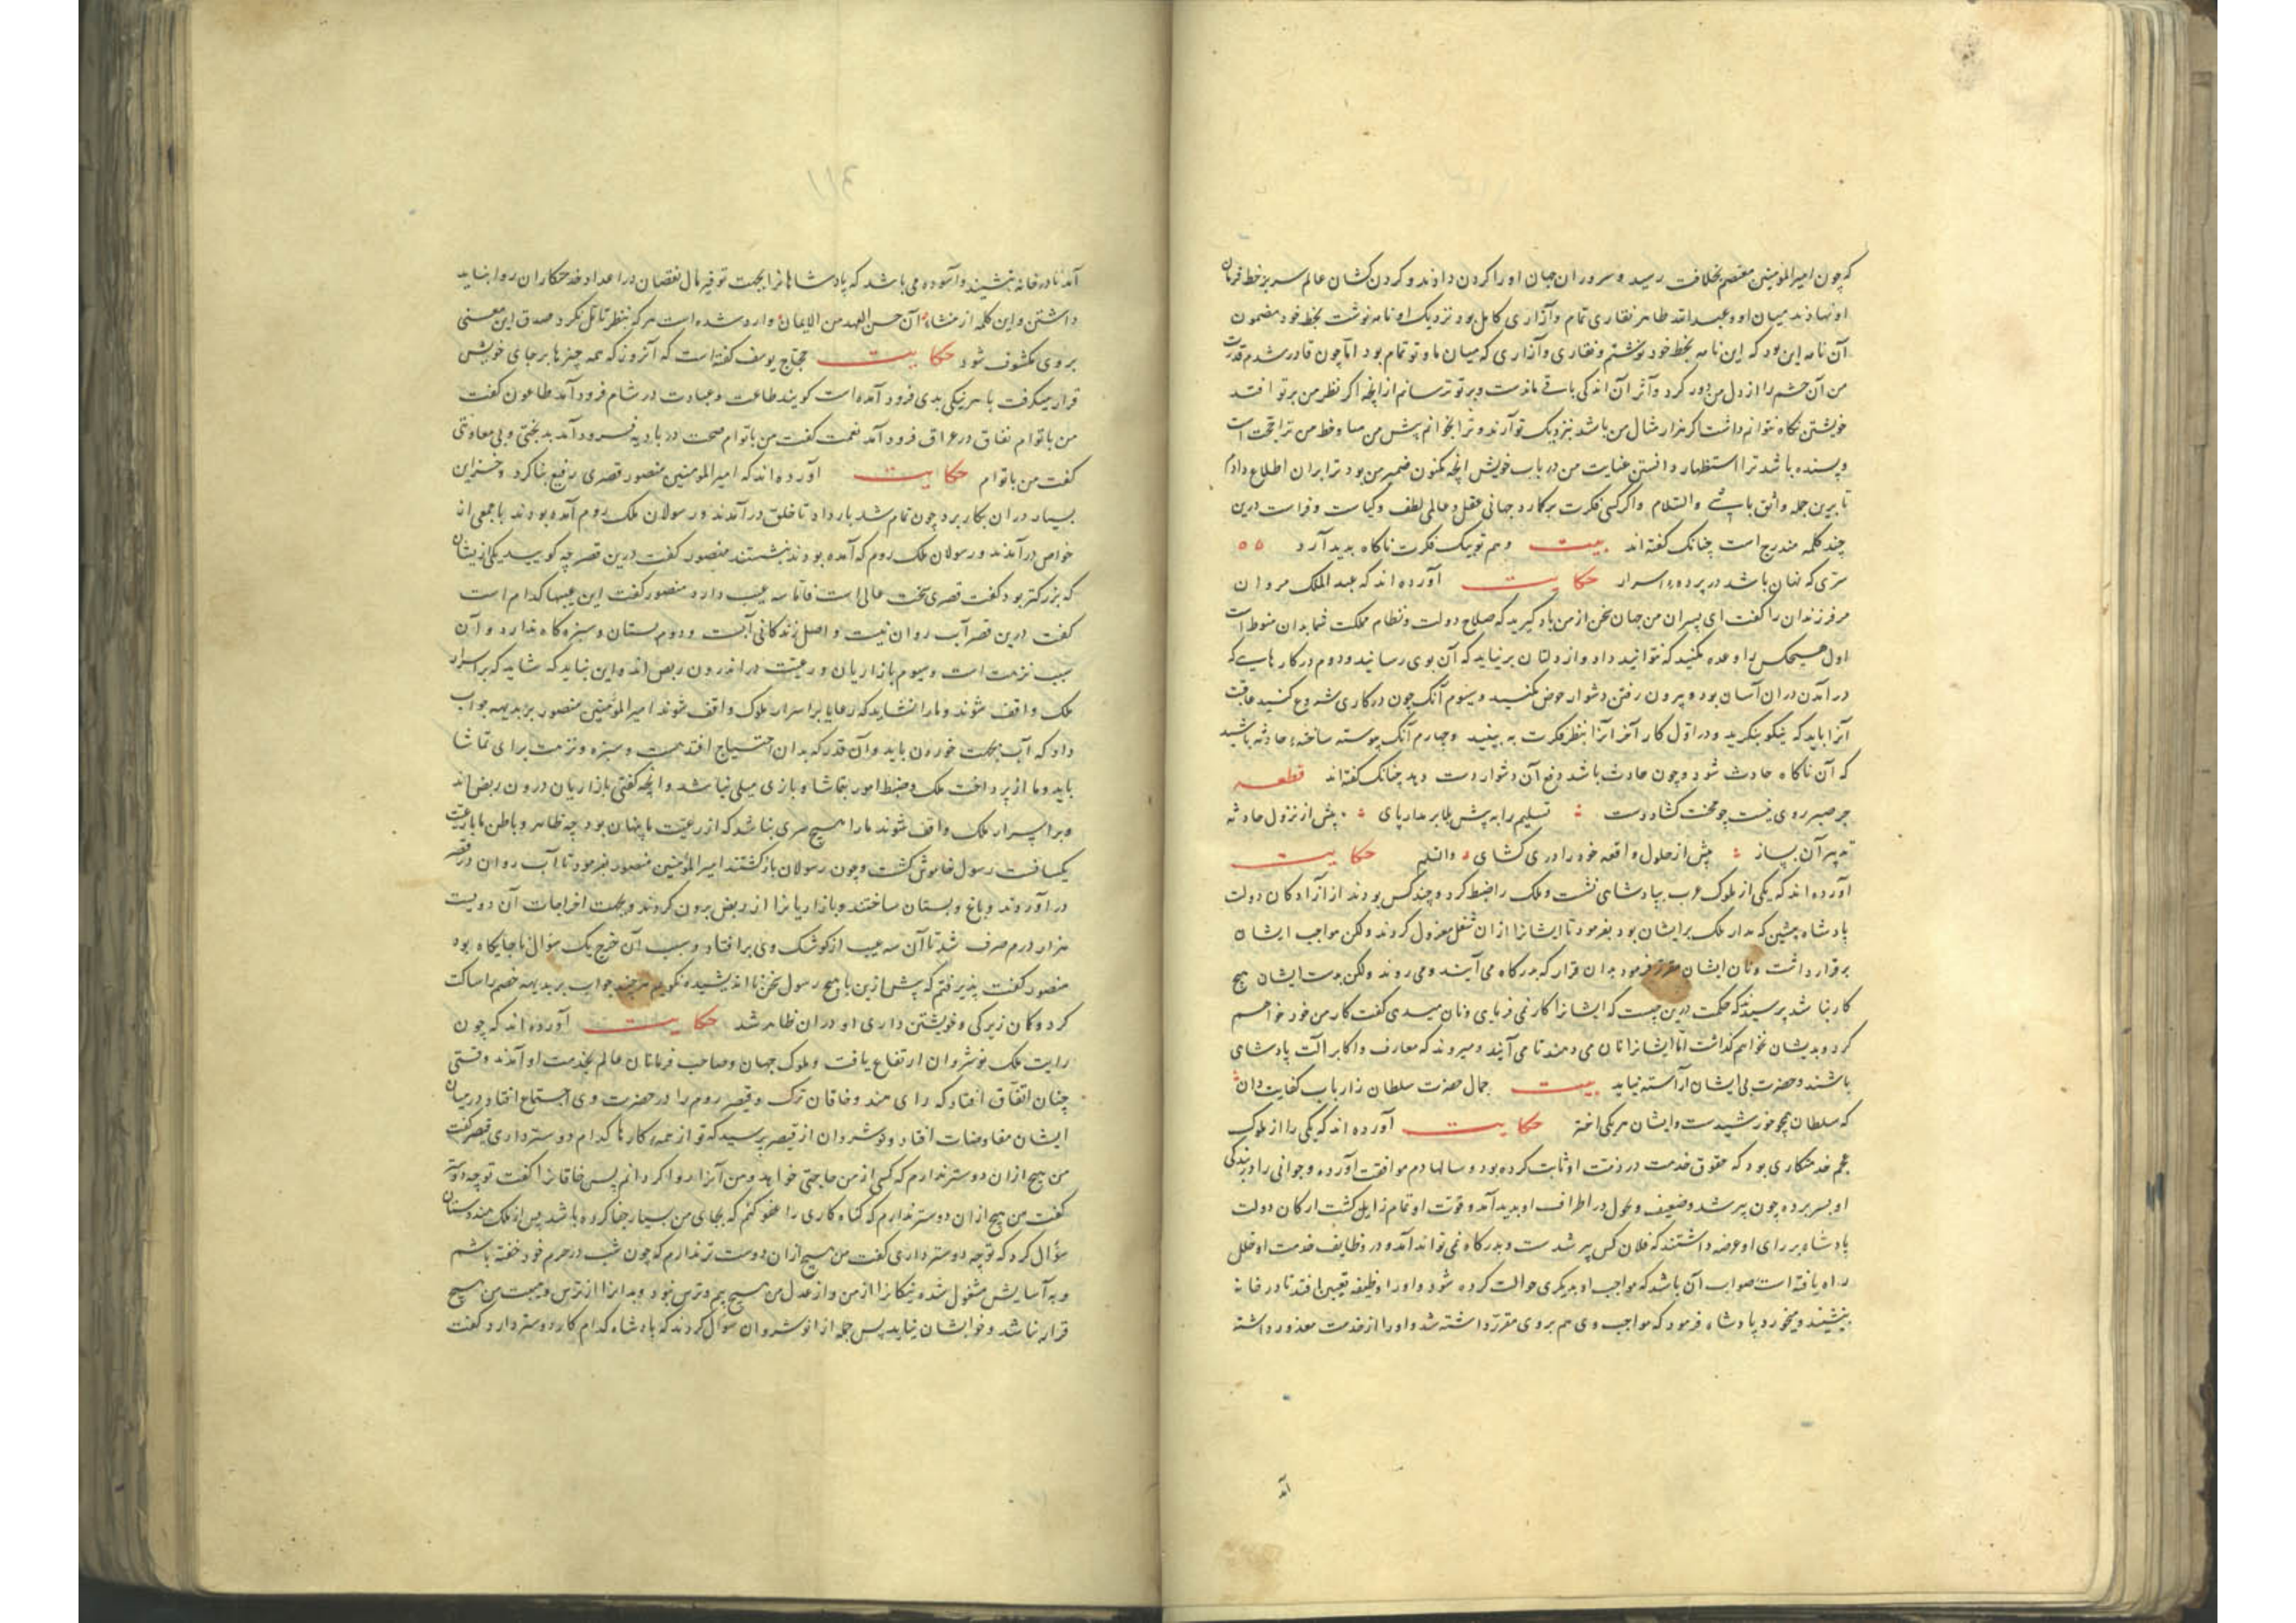 که چون امیرالمؤمنین معتصم بخلافت رسید و سروران جهان او را کردن دادند و کردن کشان عالم سر بر خط فرمان
او نهادند میان او و عبدالله طاهر نقاری تمام و آزاری کامل بود نزدیک او نامه نوشت بخط خود مضمون
آن نامه این بود که این نامه بخط خود نوشتم و نقاری و آزاری که میان ما و تو تمام بود اما چون قادر شدم قدرت
من آن خشم را از دل من دور کرد و اثر آن اندکی باقی ماندست و بر تو ترسانم از انچه اکر نظر من بر تو افتد
خویشتن نکاه نتوانم داشت اکر هزار مثال من باشد بنزدیک تو آرند و ترا بخوانم پیش من میا و خط من ترا حجت است
و پسنده باشد ترا استظهار دانستن عنایت من در باب خویش انچه مکنون ضمیر من بود ترا بران اطلاع دادم
تا برین جمله واثق باشی والسلام و اکر کسی فکرت بر کمارد جهانی عقل و عالمی لطف و کیاست و فراست درین
چند کلمه مندرج است چنانک کفته اند بیت وهم تو بیک فکرت ناکاه بدید آرد
سری که نهان باشد در پرده اسرار حکایت آورده اند که عبدالملک مروان
مر فرزندان را کفت ای پسران من چهار سخن از من یاد کیرید که صلاح دولت و نظام مملکت شما بدان منوط است
اول هیچکس را وعده مکنید که نتوانید داد و از دلتان بر نیاید که آن بوی رسانید و دوم در کارهایی که
در آمدن دران آسان بود و بیرون رفتن دشوار خوض مکنید و سیوم آنک چون در کاری شروع کنید عاقبت
آنرا باید که نیکو بنکرید و در اول کار آخر آنرا بنظر فکرت به بینید و چهارم آنک پیوسته ساخته حادثه باشید
که آن ناکاه حادث شود و چون حادث باشد دفع آن دشوار دست دهد چنانک کفته اند قطعه
جز صبر روی نیست چو محنت کشاد دست تسلیم را به پیش بلا بر مدار پای پیش از نزول حادثه
تدبیر آن بساز پیش از حلول واقعه خود را دری کشای والسلم حکایت
آورده اند که یکی از ملوک عرب بپادشاهی نشست و ملک را ضبط کرد و چند کس بودند از آزادکان دولت
پادشاه پیشین که مدار ملک بر ایشان بود بفرمود تا ایشانرا از ان شغل معزول کردند ولکن مواجب ایشان
برقرار داشت و نان ایشان مقرر فرمود بدان قرار که بدرکاه می آیند و می روند ولکن بدست ایشان هیچ
کار نباشد پرسیدند که حکمت درین چیست که ایشانرا کار نمی فرمایی و نان میدهی کفت کار من خود خواهم
کرد و بدیشان نخواهم کذاشت اما ایشانرا نان می دهند تا می آیند و میروند که معارف و اکابر آلت پادشاهی
باشند و حضرت بی ایشان آراسته نیاید بیت جمال حضرت سلطان ز ارباب کفایت دان
که سلطان همچو خورشیدست و ایشان هر یکی اختر حکایت آورده اند که یکی را از ملوک
عجم خدمتکاری بود که حقوق خدمت در ذمت او ثابت کرده بود و سالها دم موافقت آورده و جوانی را در بندکی
او بسر برده چون پیر شد و ضعیف و نحول در اطراف او بدید آمد و قوت او تمام زایل کشت ارکان دولت
پادشاه بر رای او عرضه داشتند که فلان کس پیر شدست و بدرکاه نمی تواند آمد و در وظایف خدمت او خلل
راه یافته است صواب آن باشد که مواجب او بدیکری حوالت کرده شود و او را وظیفه تعیین افتد تا در خانه
بنشیند و میخورد پادشاه فرمود که مواجب وی هم بر وی مقرر داشته شد و او را از خدمت معذور داشته
آمد
آمد تا در خانه بنشیند و آسوده می باشد که پادشاهانرا بجهت توفیر مال نقصان در اعداد خدمتکاران روا نباید
داشتن و این کلمه از منشاء ان حسن العهد من الایمان وارد شده است هر که بنظر تامل نکرد صدق این معنی
بر وی مکشوف شود حکایت حجاج یوسف کفته است که آنروز که همه چیزها بر جای خویش
قرار میکرفت با هر نیکی بدی فرود آمده است کویند طاعت و عبادت در شام فرود آمد طاعون کفت
من با توام نفاق در عراق فرود آمد نعمت کفت من با توام صحت در بادیه فرود آمد بدبختی و بی معاونتی
کفت من با توام حکایت آورده اند که امیرالمومنین منصور قصری رفیع بنا کرد و خزاین
بسیار دران بکار برد چون تمام شد بار داد تا خلق در آمدند و رسولان ملک روم آمده بودند با جمعی از
خواص در آمدند و رسولان ملک روم که آمده بودند بنشستند منصور کفت درین قصر چه کویید یکی از یشان
که بزرکتر بود کفت قصری سخت عالی است فاما سه عیب دارد منصور کفت این عیبها کدام است
کفت درین قصر آب روان نیست و اصل زندکانی آبست و دوم بستان و سبزه کاه ندارد و آن
سبب نزهت است و سیوم بازاریان و رعیت در اندرون ربض اند و این نباید که شاید که بر اسرار
ملک واقف شوند و مارا نشاید که رعایا بر اسرار ملوک واقف شوند امیرالمؤمنین منصور بر بدیهه جواب
داد که آب بجهت خوردن باید و آن قدر که بدان احتیاج افتد هست و سبزه و نزهت برای تماشا
باید و ما از پرداخت ملک و ضبط امور بتماشا و بازی میلی نباشد و انچه کفتی بازاریان درون ربض اند
و بر اسرار ملک واقف شوند مارا هیچ سری نباشد که از رعیت ما پنهان بود چه ظاهر و باطن ما با رعیت
یکسانست رسول خاموش کشت و چون رسولان بازکشتند امیرالمؤمنین منصور بفرمود تا آب روان در قصر
در آوردند و باغ و بستان ساختند و بازاریانرا از ربض برون کردند و بجهت اخراجات آن دویست
هزار درم صرف شد تا آن سه عیب از کوشک وی بر افتاد و سبب آن خرج یک سؤال نا جایکاه بود
منصور کفت پذیرفتم که پیش ازین با هیچ رسول سخن نا اندیشیده نکویم هر چند جواب بر بدیهه خصم را ساکت
کرد و کان زیرکی و خویشتن داری او دران ظاهر شد حکایت آورده اند که چون
رایت ملک نوشروان ارتفاع یافت و ملوک جهان و صاحب فرمانان عالم بخدمت او آمدند وقتی
چنان اتفاق افتاد که رای هند و خاقان ترک و قیصر روم را در حضرت وی اجتماع افتاد و درمیان
ایشان مفاوضات افتاد و نوشروان از قیصر پرسید که تو از همه کارها کدام دوستر داری قیصر کفت
من هیچ ازان دوستر ندارم که کسی از من حاجتی خواهد و من آنرا روا کردانم پس خاقانرا کفت تو چه دوستر
کفت من هیچ ازان دوستر ندارم که کناه کاری را عفو کنم که بجای من بسیار جفا کرده باشد پس از ملک هندوستان
سؤال کرد که تو چه دوستر داری کفت من هیچ ازان دوست تر ندارم که چون شب در حرم خود خفته باشم
و به آسایش مشغول شده نیکانرا از من و از عدل من هیچ بیم و ترس نبود و بدانرا از ترس و هیبت من هیچ
قرار نباشد و خوابشان نیاید پس جمله از نوشروان سؤال کردند که پادشاه کدام کار دوستر دارد کفت